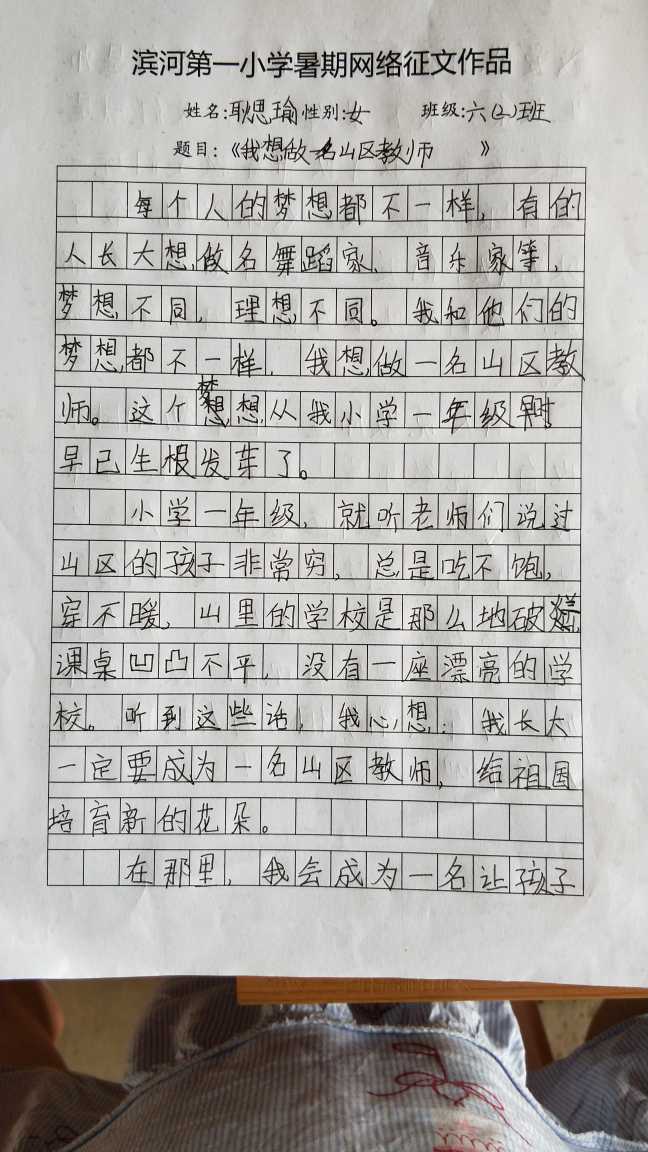 滨河第一小学暑期网络征文作品
姓名:耿思瑜性别:女 班级:六(2)班
题目:《我想做一名山区教师 》
每个人的梦想都不一样，有的
人长大想做名舞蹈家、音乐家等，
梦想不同，理想不同。我和他们的
梦想都不一样，我想做一名山区教
师。这个梦想从我小学一年级
早已生根发芽了。
小学一年级，就听老师们说过
山区的孩子非常穷，总是吃不饱，
穿不暖，山里的学校是那么地破烂
课桌凹凸不平，没有一座漂亮的学
校。听到这些话，我心想：我长大
一定要成为一名山区教师，给祖国
培育新的花朵。
在那里，我会成为一名让孩子